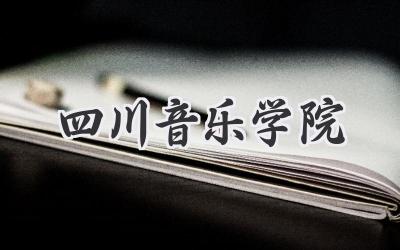 四川音乐学院